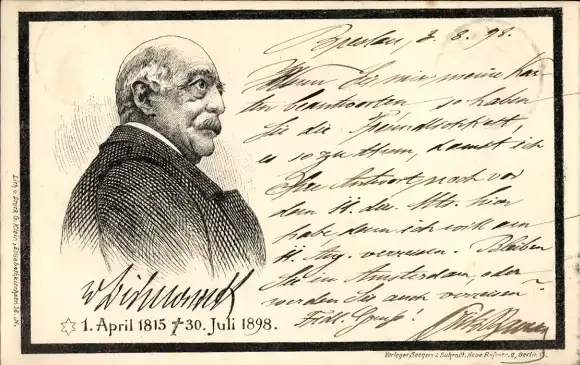 Breslau, 2. 8. 98.
Wenn Sie mir meine Kar-
ten beantworten so haben
Sie die Freundlichkeit,
es so zu thun, damit ich
Ihre Antwort noch vor
dem 11. des Mts. hier
habe denn ich will am
11. Aug. verreisen. Bleiben
Sie in Amsterdam, oder
werden Sie auch verreisen?
Frdl. Gruss!
v Bismarck
1. April 1815 † 30. Juli 1898.
Lith. u. Druck G. Klein, Elisabethkirchstr.
Verleger, Seegers & Suhrndt, Neue Roßstr. 2, Berlin C.